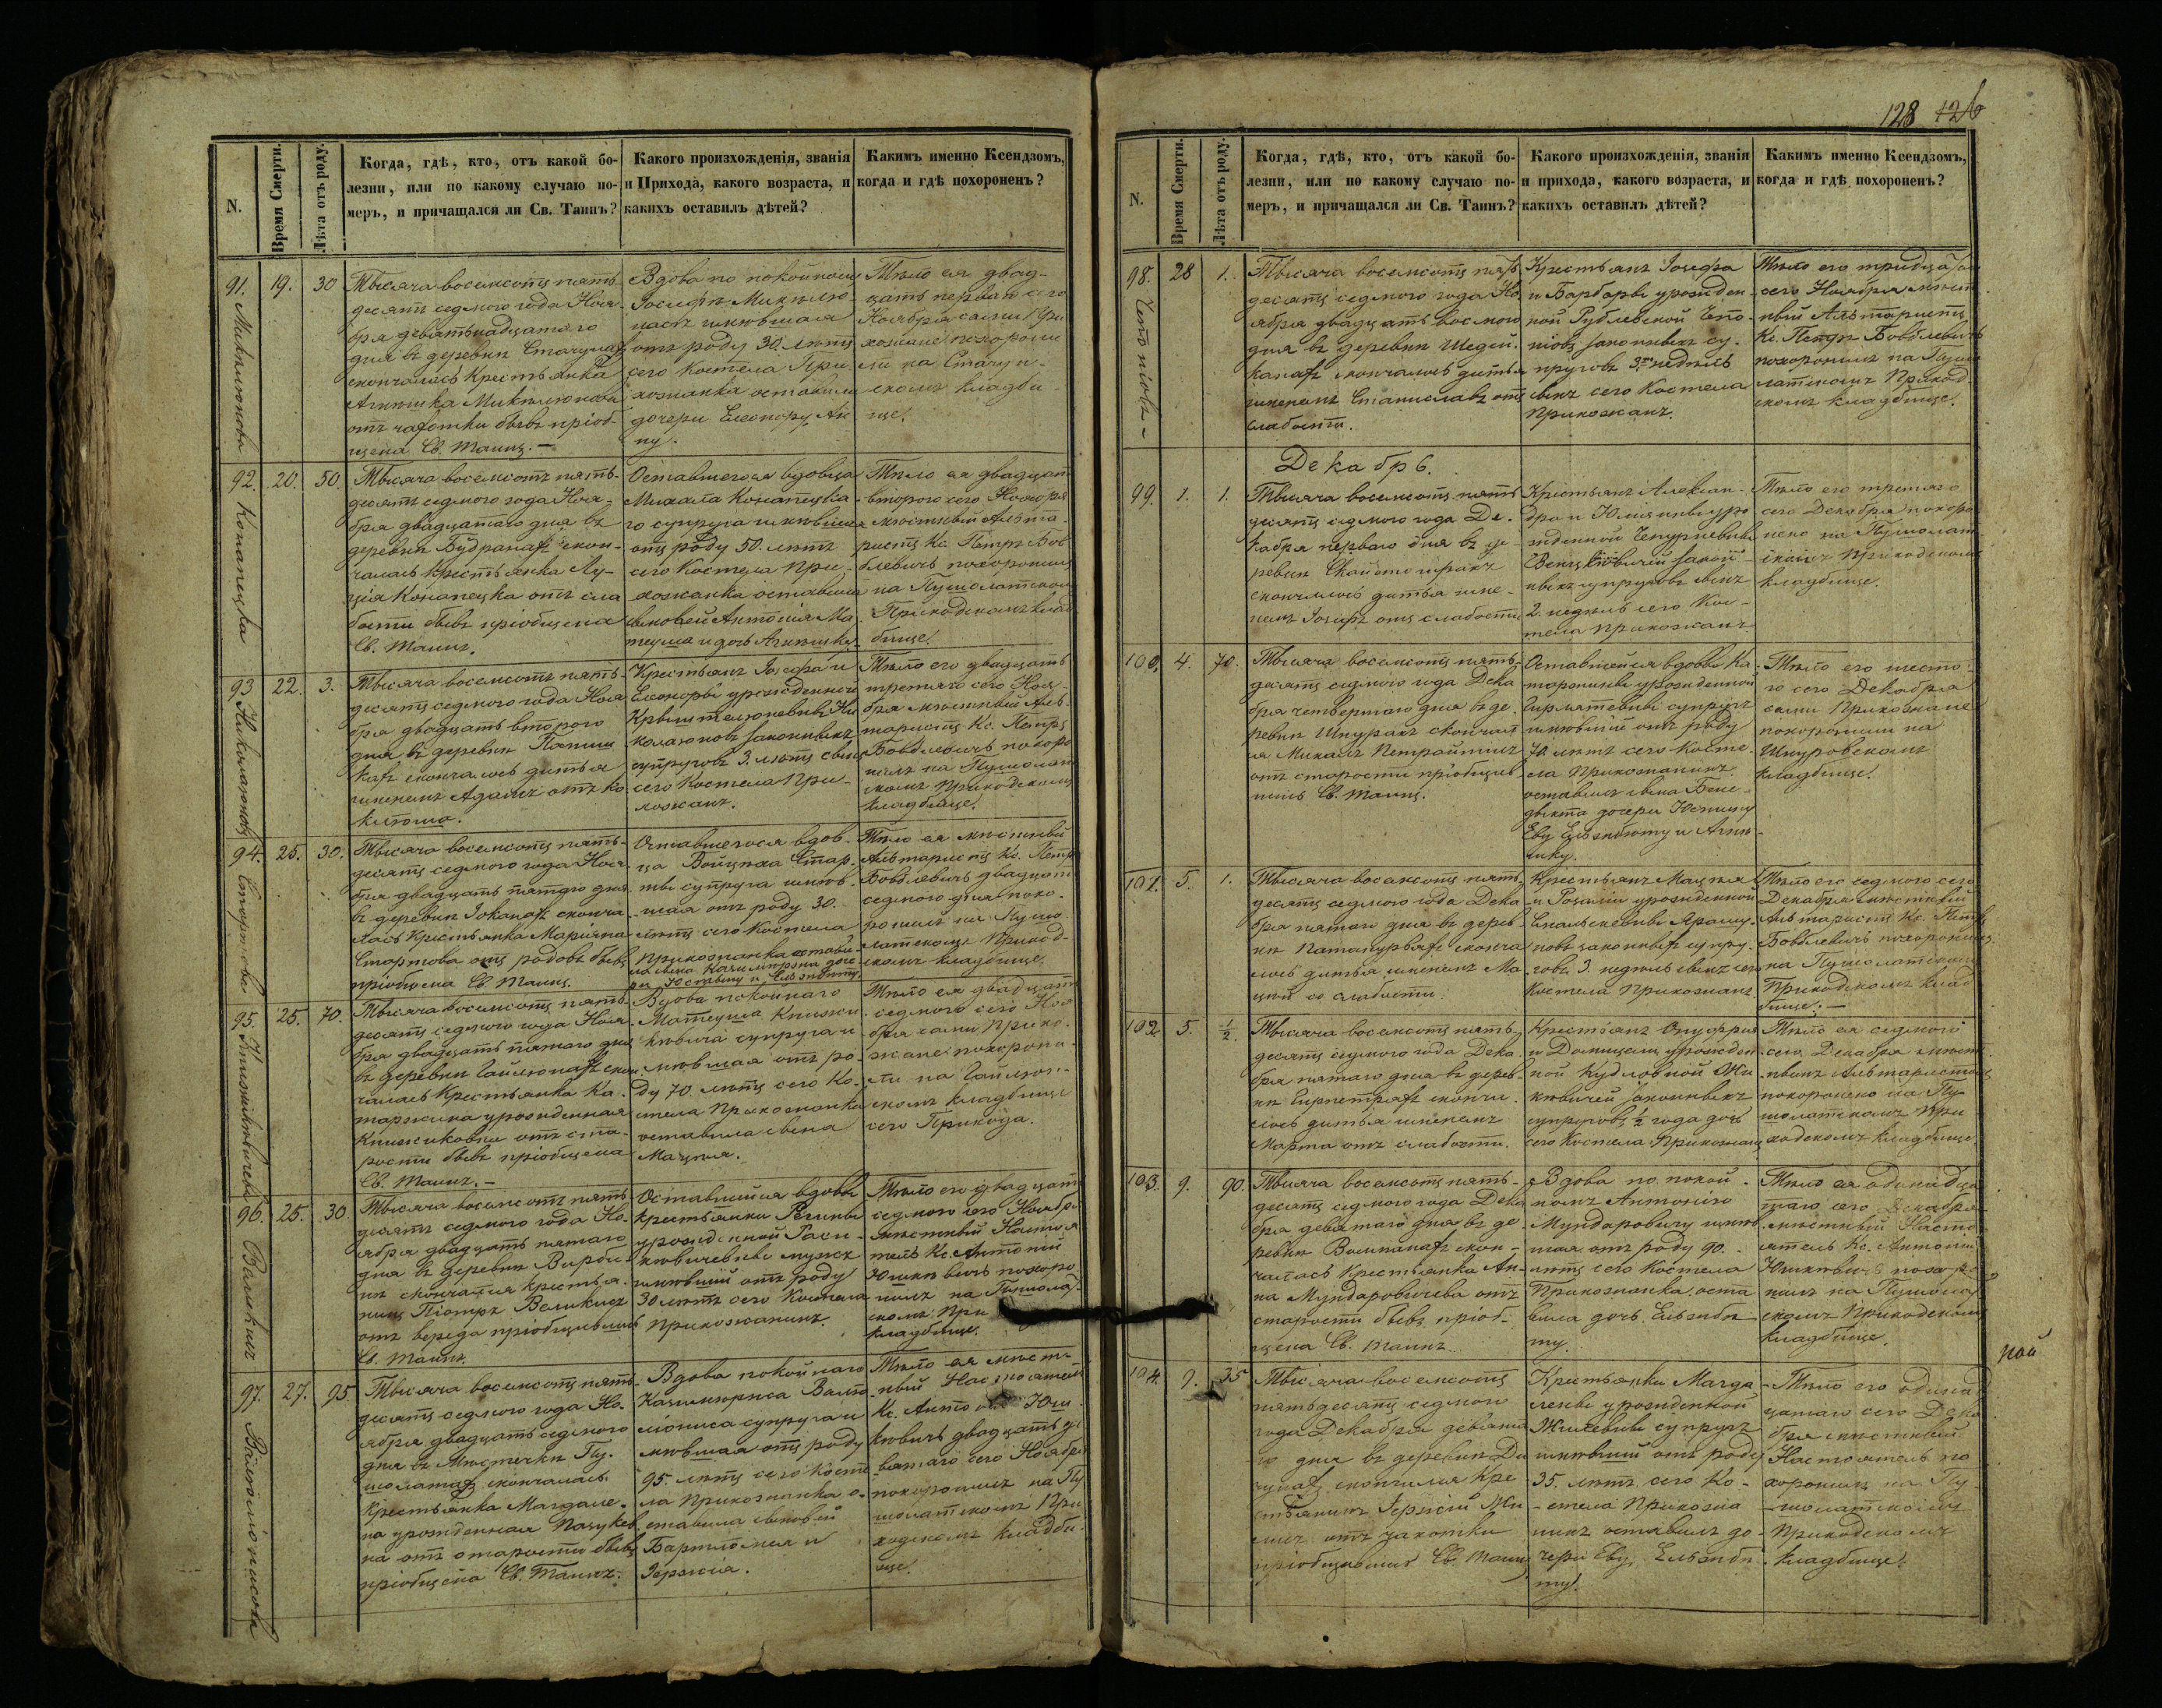 128 126
N.
Время Смерти.
Лѣта отъ роду.
Когда, гдѣ, кто, отъ какой бо-
лезни, или по какому случаю по-
меръ, и причащался ли Св. Таинъ?
Какого произхожденія, званія
и Прихода, какого возраста, и
какихъ оставилъ дѣтей?
Какимъ именно Ксендзомъ,
когда и гдѣ похороненъ?
91. 19. 30
Микилюнова
Тысяча восемсотъ пять-
десятъ седмого года Ноя-
бря девятнадцатаго
дня въ деревни
скончалась Крестьянка
отъ чахотки бывъ пріоб-
щена Св. Таинъ.
Вдова по покойному
Іосифѣ
имѣвшая
отъ роду 30. лѣтъ
сего Костела При-
хожанка оставила
дочери Елеонору, Ан-
ну.
Тѣло ея двад-
цать перваго сего
Ноября сами при-
хожане похорони-
ли на
скомъ кладби-
ще.
92. 20. 50.
Конапецка
Тысяча восемсотъ пять-
десятъ седмого года Ноя-
бря двадцатаго дня въ
деревни Будранахъ скон-
чалась Крестьянка Лу-
ція Конапецка отъ сла-
бости бывъ пріобщена
Св. Таинъ.
Оставшегося вдовца
Михала Конапецка-
го супруга имѣвшая
отъ роду 50. лѣтъ
сего Костела При-
хожанка оставила
сыновей Антонія Ма-
теуша и дочь Агнѣшку
Тѣло ея двадцать
второго сего Ноября
мѣстный Альта-
ристъ Кс. Петръ Бов-
блевичъ похоронилъ
на Пушолатскомъ
Приходскомъ клад-
бище.
93 22. 3.
Николаюновъ
Тысяча восемсотъ пять-
десятъ седмого года Ноя-
бря двадцать второго
дня въ деревни
кахъ скончалось дитья
именемъ Адамъ отъ ко-
клюша.
Крестьянъ Іосифа и
Елеоноры урожденной
Ни-
колаюновъ законныхъ
супруговъ 3. лѣтъ сынъ
сего Костела При-
хожанъ.
Тѣло его двадцать
третяго сего Ноя-
бря мѣстный Аль-
таристъ Кс. Петръ
Бовблевичъ похоро-
нилъ на Пушолат-
скомъ Приходскомъ
кладбище.
94. 25. 30.
Стартова
Тысяча восемсотъ пять-
десятъ седмого года Ноя-
бря двадцать пятаго дня
въ деревни Іоканахъ сконча-
лась Крестьянка Маріяна
Стартова отъ родовъ бывъ
пріобщена Св. Таинъ.
Оставшегося вдов-
ца Войцѣха Стар-
ты супруга имѣв-
шая отъ роду 30.
лѣтъ сего Костела
Прихожанка остави-
ла сына Казимѣржа доче-
ри Юстину и Ельзбѣту.
Тѣло ея мѣстный
Альтаристъ Кс. Петръ
Бовблевичъ двадцать
седмого дня похо-
ронилъ на Пушо-
латскомъ Приход-
скомъ кладбище.
95. 25. 70.
Тысяча восемсотъ пять-
десятъ седмого года Ноя-
бря двадцать пятаго дня
въ деревни Гайлюнахъ скон-
чалась Крестьянка Ка-
таржина урожденная
отъ ста-
рости бывъ пріобщена
Св. Таинъ.
Вдова покойнаго
Матеуша
супруга и-
мѣвшая отъ ро-
ду 70 лѣтъ сего Ко-
стела Прихожанка
оставила сына
Мацѣя.
Тѣло ея двадцать
седмого сего Ноя-
бря сами прихо-
жане похорони-
ли на Гайлюн-
скомъ кладбище
сего Прихода.
96. 25. 30
Великисъ
Тысяча восемсотъ пять-
десятъ седмого года Но-
ября двадцать пятаго
дня въ деревни
скончался Крестья-
нинъ Піотръ Великисъ
отъ вереда пріобщившись
Св. Таинъ.
Оставшейся вдовы
крестьянки Регины
урожденной
мужъ
имѣвшій отъ роду
30 лѣтъ сего Костела
прихожанинъ.
Тѣло его двадцать
седмого сего Ноября
мѣстный Настоя-
тель Кс. Антоній
Юшкевичъ похоро-
нилъ на Пушолат-
скомъ При
кладбище.
97. 27. 95
Тысяча восемсотъ пять-
десятъ седмого года Но-
ября двадцать седмого
дня въ Мѣстечки Пу-
шолатахъ скончалась
Крестьянка Магдале-
на урожденная
отъ старости бывъ
пріобщена Св. Таинъ.
Вдова покойнаго
Казимѣржа
супруга и-
мѣвшая отъ роду
95. лѣтъ сего Косте-
ла прихожанка о-
ставила сыновей
Бартломея и
Іержія.
Тѣло ея мѣст-
ный Настоятель
Кс. Антоній Юш-
кевичъ двадцать де-
вятаго сего Ноября
похоронилъ на Пу-
шолатскомъ При-
ходскомъ кладби-
ще.
N.
Время Смерти.
Лѣта отъ роду.
Когда, гдѣ, кто, отъ какой бо-
лезни, или по какому случаю по-
меръ, и причащался ли Св. Таинъ?
Какого произхожденія, званія
и прихода, какого возраста, и
какихъ оставилъ дѣтей?
Какимъ именно Ксендзомъ,
когда и гдѣ похороненъ?
98. 28 1.
Тысяча восемсотъ пять-
десятъ седмого года Но-
ября двадцать восмого
дня въ деревни
скончалось дитья
именемъ Станиславъ отъ
слабости.
Крестьянъ Іосифа
и Барбары урожден-
ной Рублевской
законныхъ су-
пруговъ 3. недѣль
сынъ сего Костела
Прихожанъ.
Тѣло его тридцатаго
сего Ноября мѣст-
ный Альтаристъ
Кс. Петръ Бовблевичъ
похоронилъ на Пушо-
латскомъ Приход-
скомъ кладбище.
Декабрь.
99. 1. 1.
Тысяча восемсотъ пять-
десятъ седмого года Де-
кабря перваго дня въ де-
ревни
скончалось дитья име-
немъ Іосифъ отъ слабости
Крестьянъ Алексан-
дра и Юліянны уро-
жденной
закон-
ныхъ супруговъ сынъ
2. недѣль сего Кос-
тела прихожанъ.
Тѣло его третяго
сего Декабря похоро-
нено на Пушолат-
скомъ Приходскомъ
кладбище.
100. 4. 70.
Тысяча восемсотъ пять-
десятъ седмого года Дека-
бря четвертаго дня въ де-
ревни Шпурахъ скончал-
ся Михалъ Петрайтисъ
отъ старости пріобщив-
шись Св. Таинъ.
Оставшейся вдовы Ка-
таржины урожденной
супругъ
имѣвшій отъ роду
70 лѣтъ сего Косте-
ла Прихожанинъ
оставилъ сына Бене-
дыкта дочери Юстину
Еву Ельзбѣту и Агнѣ-
шку.
Тѣло его шесто-
го сего Декабря
сами Прихожане
похоронили на
Шпуровскомъ
кладбище.
101. 5. 1.
Тысяча восемсотъ пять-
десятъ седмого года Дека-
бря пятаго дня въ дерев-
ни сконча-
лось дитья именемъ Ма-
цѣй со слабости.
Крестьянъ Мацѣя
и Розаліи урожденной
законныхъ супру-
говъ 3. недѣль сынъ сего
Костела Прихожанъ.
Тѣло его седмого сего
Декабря мѣстный
Альтаристъ Кс. Петръ
Бовблевичъ похоронилъ
на Пушолатскомъ
Приходскомъ клад-
бище.
102. 5. ½.
Тысяча восемсотъ пять-
десятъ седмого года Дека-
бря пятаго дня въ дерев-
ни сконча-
лось дитья именемъ
Марта отъ слабости.
Крестьянъ Онуфрія
и Домицели урожден-
ной
законныхъ
супруговъ ½ года дочь
сего Костела Прихожанъ
Тѣло ея седмого
сего Декабря мѣст-
нымъ Альтаристомъ
похоронено на Пу-
шолатскомъ При-
ходскомъ кладбище.
103. 9. 90.
Тысяча восемсотъ пять-
десятъ седмого года Дека-
бря девятаго дня въ де-
ревни скон-
чалась Крестьянка Ан-
на Мундаровичева отъ
старости бывъ пріоб-
щена Св. Таинъ.
Вдова по покой-
номъ Антонію
Мундаровичу имѣв-
шая отъ роду 90.
лѣтъ сего Костела
Прихожанка оста-
вила дочь Ельзбѣ-
ту.
Тѣло ея одинадца-
таго сего Декабря
мѣстный Насто-
ятель Кс. Антоній
Юшкевичъ похоро-
нилъ на Пушолат-
скомъ Приходскомъ
кладбище.
104. 9. 35
Тысяча восемсотъ
пятьдесятъ седмого
года Декабря девята-
го дня въ деревни
скончался Кре-
стьянинъ Іержій
отъ чахотки
пріобщившись Св. Таинъ
Крестьянки Магда-
лены урожденной
супругъ
имѣвшій отъ роду
35. лѣтъ сего Ко-
стела Прихожа-
нинъ оставилъ до-
чери Еву, Ельзбѣ-
ту.
Тѣло его одинад-
цатаго сего Дека-
бря мѣстный
Настоятель по-
хоронилъ на Пу-
шолатскомъ
Приходскомъ
кладбище.